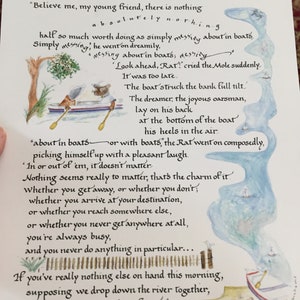 "Believe me, my young friend, there is nothing
absolutely nothing
half so much worth doing as simply messing about in boats.
Simply messing," he went on dreamily,
"messing about in boats; messing
"Look ahead, Rat!" cried the Mole suddenly.
It was too late.
The boat struck the bank full tilt.
The dreamer, the joyous oarsman,
lay on his back
at the bottom of the boat
his heels in the air
"about in boats — or with boats," the Rat went on composedly,
picking himself up with a pleasant laugh.
"In or out of 'em, it doesn't matter.
Nothing seems really to matter, that's the charm of it.
Whether you get away, or whether you don't,
whether you arrive at your destination,
or whether you reach somewhere else,
or whether you never get anywhere at all,
you're always busy,
and you never do anything in particular...
If you've really nothing else on hand this morning,
supposing we drop down the river together,